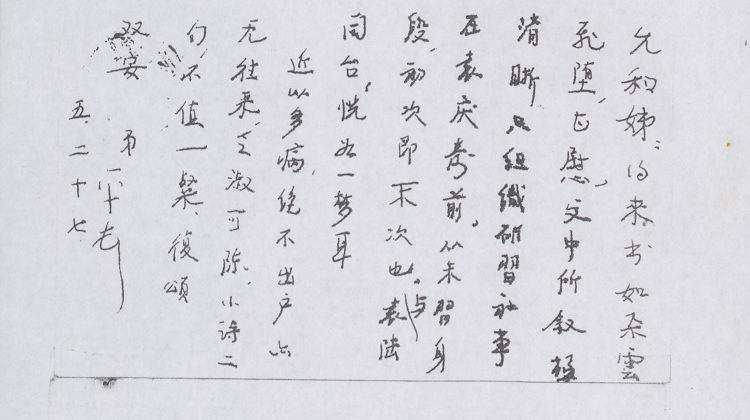 允和姊：得来书如朵雲
飛堕，至慰，文中所叙極
清晰，只组織研習社事
在袁庆寿前，从未習身
段，初次即末次也。与袁陆
同台，恍如一梦耳
近以多病，绝不出户亦
无往来，乏淑可陈，小诗二
不值一粲，復頌
双安
弟一平
五、二十七